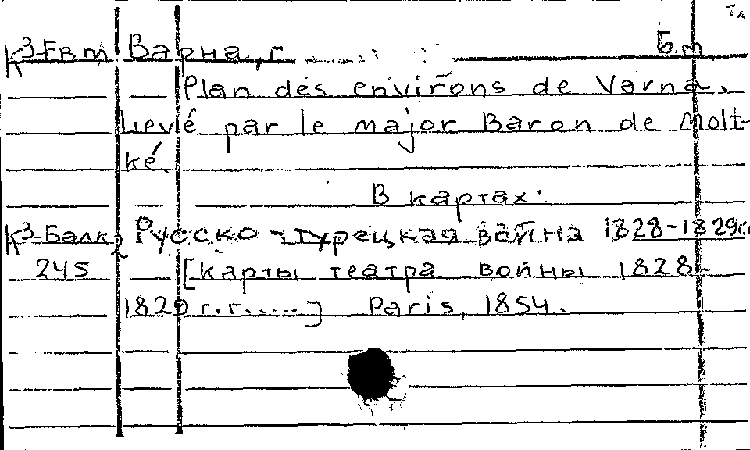 К3-Евт Варна, г. Б.м
Plan des environs de Varna.
Levé par le major Baron de Molt-
ké.
В картах:
К3-Балк. Русско-турецкая война 1828-1829гг.
245 [карты театра войны 1828-
1829 г.г.....] Paris, 1854.